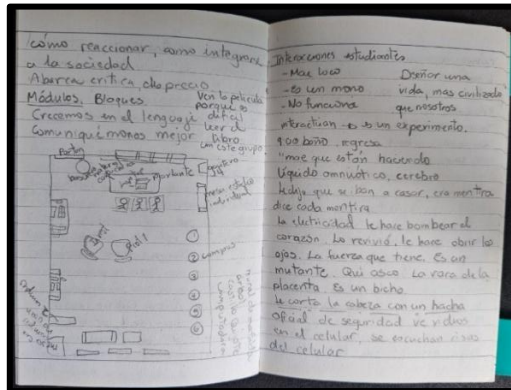 cómo reaccionar, como integrarse
a la sociedad
Abarca crítica, alto precio.
Módulos. Bloques
Ven la película
porque es
difícil
leer el
libro
con este grupo
Crecamos en el lenguaje
Comuniquémonos mejor
①
② campus
③
④
⑤
⑥
Interacciones estudiantes
- Mae loco
- Es un mono
- No funciona
Diseñar una
vida, mas civilizada
que nosotros
interactuan es un experimento.
baño, regresa
"mae que están haciendo
líquido amniótico, cerebro
le dijo que se iban a casar, era mentira
dice cada mentira
la electricidad le hace bombear al
corazón. Lo revivió, le hace abrir los
ojos. La fuerza que tiene. Es un
mutante. Qui asco. Lo raro de la
placenta. Es un bicho.
le corta la cabeza con un hacha
Oficial de seguridad ve videos
en el celular, se escuchan risas
del celular